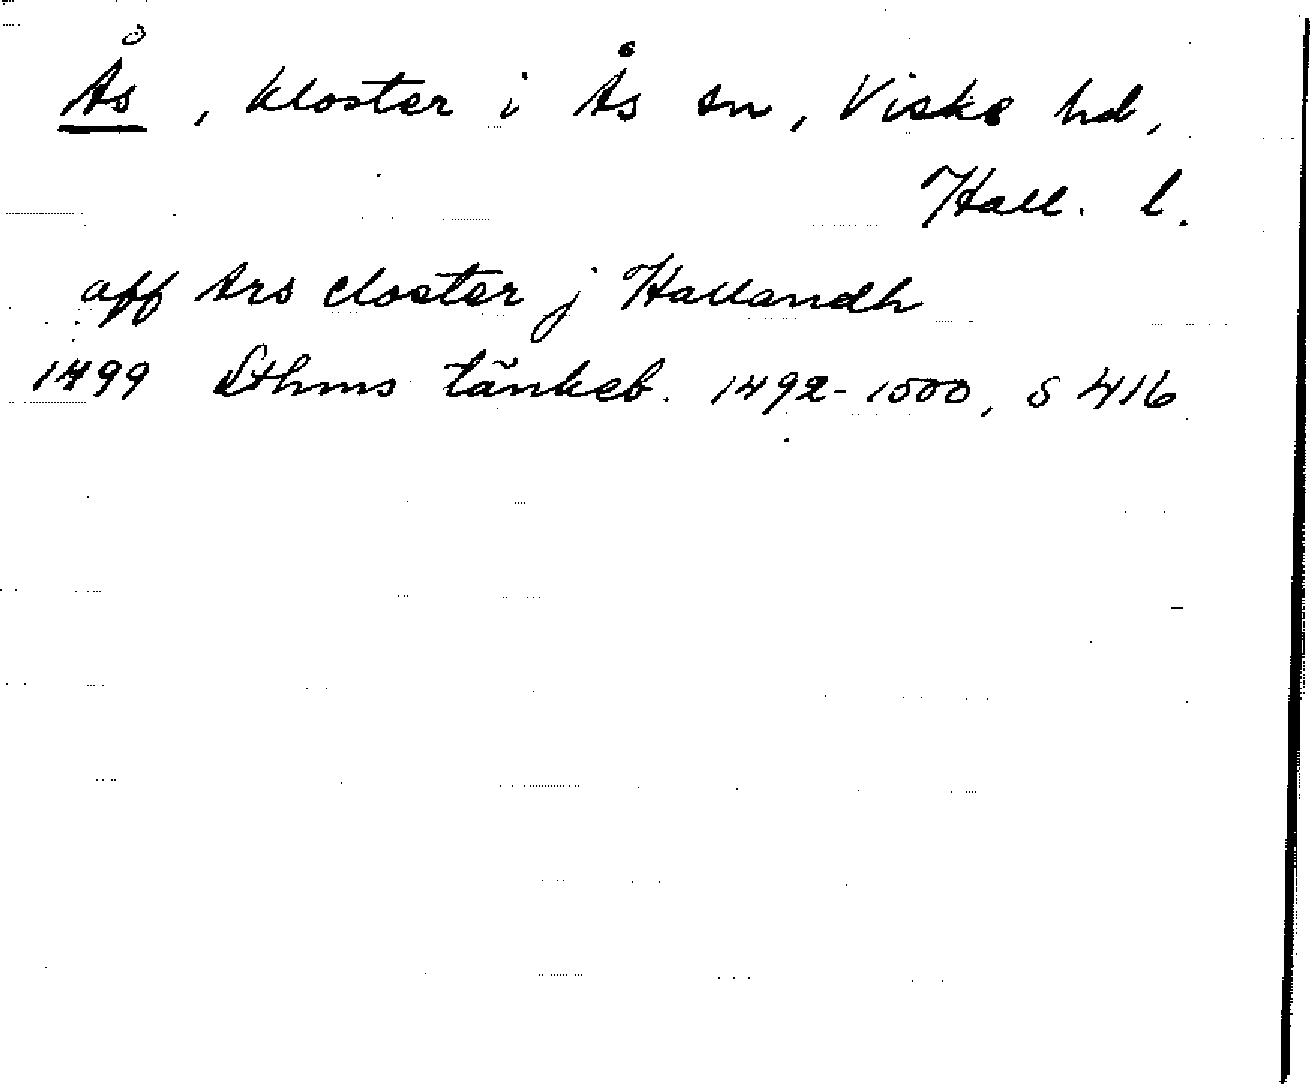 Ås, kloster i Ås sn, Viske hd,
Hall. l.
aff Ars closter j Hallandh
1499 Sthms tänkeb. 1492-1500, s 416